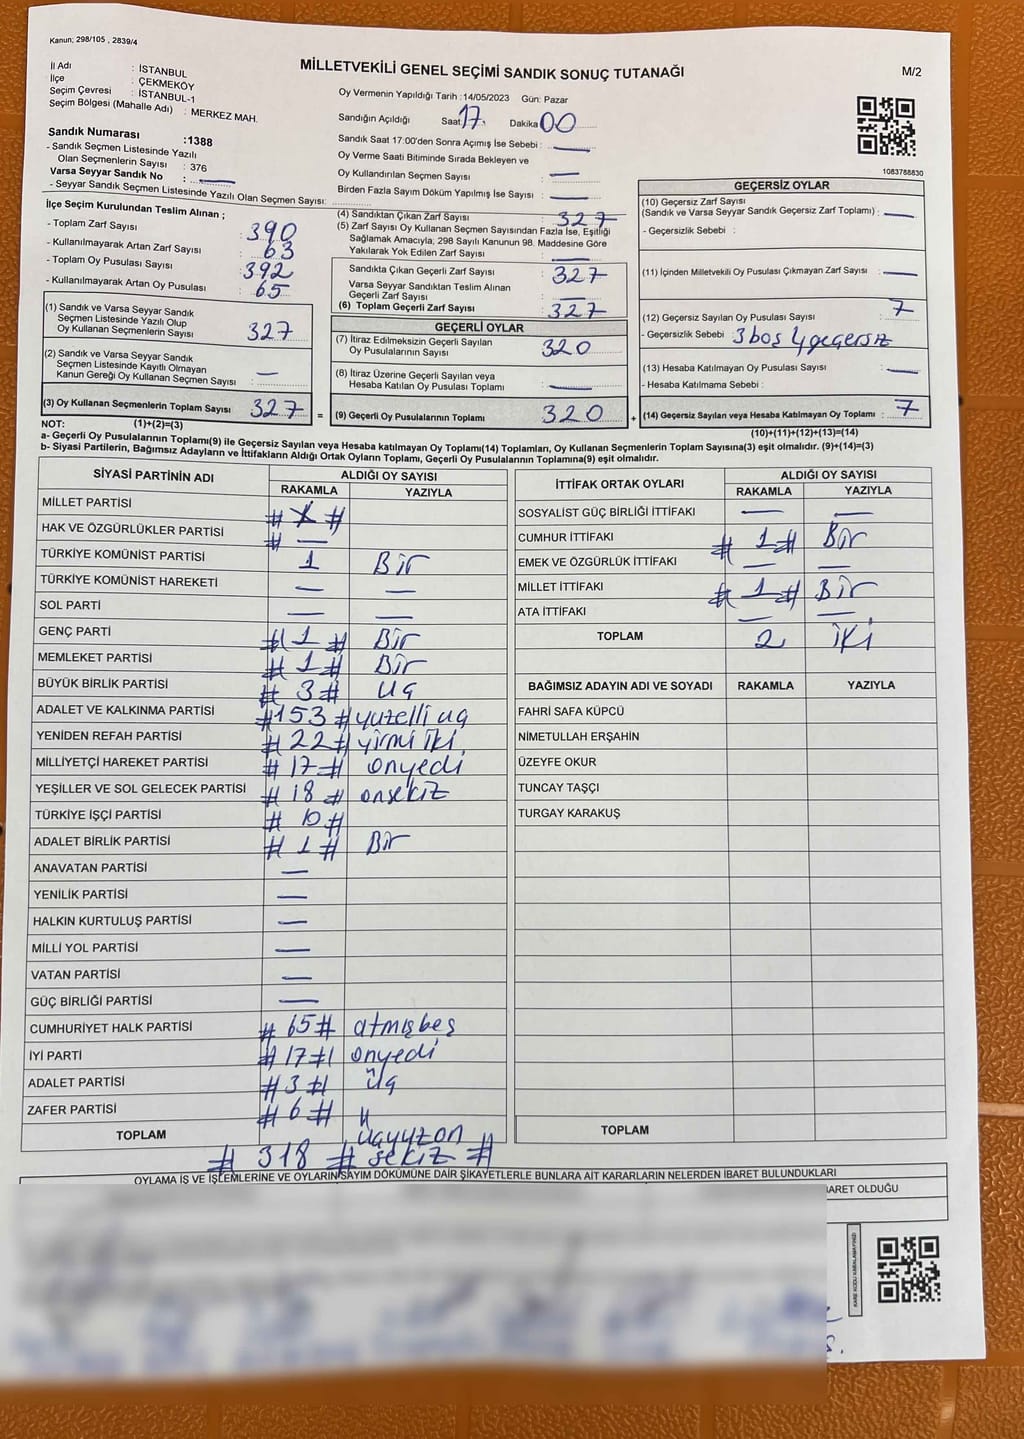 Kanun; 298/105 , 2839/4
MİLLETVEKİLİ GENEL SEÇİMİ SANDIK SONUÇ TUTANAĞI
M/2
İl Adı : İSTANBUL
İlçe : ÇEKMEKÖY
Seçim Çevresi : İSTANBUL-1
Seçim Bölgesi (Mahalle Adı) : MERKEZ MAH.
Sandık Numarası :1388
- Sandık Seçmen Listesinde Yazılı
Olan Seçmenlerin Sayısı : 376
Varsa Seyyar Sandık No : —
- Seyyar Sandık Seçmen Listesinde Yazılı Olan Seçmen Sayısı:
İlçe Seçim Kurulundan Teslim Alınan ;
- Toplam Zarf Sayısı : 390
- Kullanılmayarak Artan Zarf Sayısı : 63
- Toplam Oy Pusulası Sayısı : 392
- Kullanılmayarak Artan Oy Pusulası : 65
(1) Sandık ve Varsa Seyyar Sandık
Seçmen Listesinde Yazılı Olup
Oy Kullanan Seçmenlerin Sayısı : 327
(2) Sandık ve Varsa Seyyar Sandık
Seçmen Listesinde Kayıtlı Olmayan
Kanun Gereği Oy Kullanan Seçmen Sayısı : —
(3) Oy Kullanan Seçmenlerin Toplam Sayısı 327 =
Oy Vermenin Yapıldığı Tarih :14/05/2023 Gün: Pazar
Sandığın Açıldığı Saat 17 Dakika 00
Sandık Saat 17:00'den Sonra Açımış İse Sebebi : —
Oy Verme Saati Bitiminde Sırada Bekleyen ve
Oy Kullandırılan Seçmen Sayısı : —
Birden Fazla Sayım Döküm Yapılmış İse Sayısı : —
(4) Sandıktan Çıkan Zarf Sayısı : 327
(5) Zarf Sayısı Oy Kullanan Seçmen Sayısından Fazla İse, Eşitliği
Sağlamak Amacıyla, 298 Sayılı Kanunun 98. Maddesine Göre
Yakılarak Yok Edilen Zarf Sayısı : —
Sandıkta Çıkan Geçerli Zarf Sayısı : 327
Varsa Seyyar Sandıktan Teslim Alınan
Geçerli Zarf Sayısı : —
(6) Toplam Geçerli Zarf Sayısı : 327
GEÇERLİ OYLAR
(7) İtiraz Edilmeksizin Geçerli Sayılan
Oy Pusulalarının Sayısı : 320
(8) İtiraz Üzerine Geçerli Sayılan veya
Hesaba Katılan Oy Pusulası Toplamı : —
(9) Geçerli Oy Pusulalarının Toplamı : 320 +
1083788830
GEÇERSİZ OYLAR
(10) Geçersiz Zarf Sayısı
(Sandık ve Varsa Seyyar Sandık Geçersiz Zarf Toplamı) : —
- Geçersizlik Sebebi :
(11) İçinden Milletvekili Oy Pusulası Çıkmayan Zarf Sayısı : —
(12) Geçersiz Sayılan Oy Pusulası Sayısı : 7
- Geçersizlik Sebebi : 3 boş 4 geçersiz
(13) Hesaba Katılmayan Oy Pusulası Sayısı : —
- Hesaba Katılmama Sebebi :
(14) Geçersiz Sayılan veya Hesaba Katılmayan Oy Toplamı : 7
NOT: (1)+(2)=(3)
(10)+(11)+(12)+(13)=(14)
a- Geçerli Oy Pusulalarının Toplamı(9) ile Geçersiz Sayılan veya Hesaba katılmayan Oy Toplamı(14) Toplamları, Oy Kullanan Seçmenlerin Toplam Sayısına(3) eşit olmalıdır. (9)+(14)=(3)
b- Siyasi Partilerin, Bağımsız Adayların ve İttifakların Aldığı Ortak Oyların Toplamı, Geçerli Oy Pusulalarının Toplamına(9) eşit olmalıdır.
SİYASİ PARTİNİN ADI ALDIĞI OY SAYISI
RAKAMLA YAZIYLA
MİLLET PARTİSİ # #
HAK VE ÖZGÜRLÜKLER PARTİSİ # —
TÜRKİYE KOMÜNİST PARTİSİ 1 Bir
TÜRKİYE KOMÜNİST HAREKETİ — —
SOL PARTİ — —
GENÇ PARTİ # 1 # Bir
MEMLEKET PARTİSİ # 1 # Bir
BÜYÜK BİRLİK PARTİSİ # 3 # üç
ADALET VE KALKINMA PARTİSİ #153 # yüzelli üç
YENİDEN REFAH PARTİSİ # 22 # yirmi iki
MİLLİYETÇİ HAREKET PARTİSİ # 17 # onyedi
YEŞİLLER VE SOL GELECEK PARTİSİ # 18 # onsekiz
TÜRKİYE İŞÇİ PARTİSİ # 10 #
ADALET BİRLİK PARTİSİ # 1 # Bir
ANAVATAN PARTİSİ —
YENİLİK PARTİSİ —
HALKIN KURTULUŞ PARTİSİ —
MİLLİ YOL PARTİSİ —
VATAN PARTİSİ —
GÜÇ BİRLİĞİ PARTİSİ —
CUMHURİYET HALK PARTİSİ # 65 # atmışbeş
İYİ PARTİ # 17 # onyedi
ADALET PARTİSİ # 3 # üç
ZAFER PARTİSİ # 6 #
TOPLAM # 318 # üçyüzon sekiz #
İTTİFAK ORTAK OYLARI ALDIĞI OY SAYISI
RAKAMLA YAZIYLA
SOSYALİST GÜÇ BİRLİĞİ İTTİFAKI — —
CUMHUR İTTİFAKI # 1 # Bir
EMEK VE ÖZGÜRLÜK İTTİFAKI — —
MİLLET İTTİFAKI # 1 # Bir
ATA İTTİFAKI — —
TOPLAM 2 iki
BAĞIMSIZ ADAYIN ADI VE SOYADI RAKAMLA YAZIYLA
FAHRİ SAFA KÜPCÜ
NİMETULLAH ERŞAHİN
ÜZEYFE OKUR
TUNCAY TAŞÇI
TURGAY KARAKUŞ
TOPLAM
OYLAMA İŞ VE İŞLEMLERİNE VE OYLARIN SAYIM DÖKÜMÜNE DAİR ŞİKAYETLERLE BUNLARA AİT KARARLARIN NELERDEN İBARET BULUNDUKLARI
BARET OLDUĞU